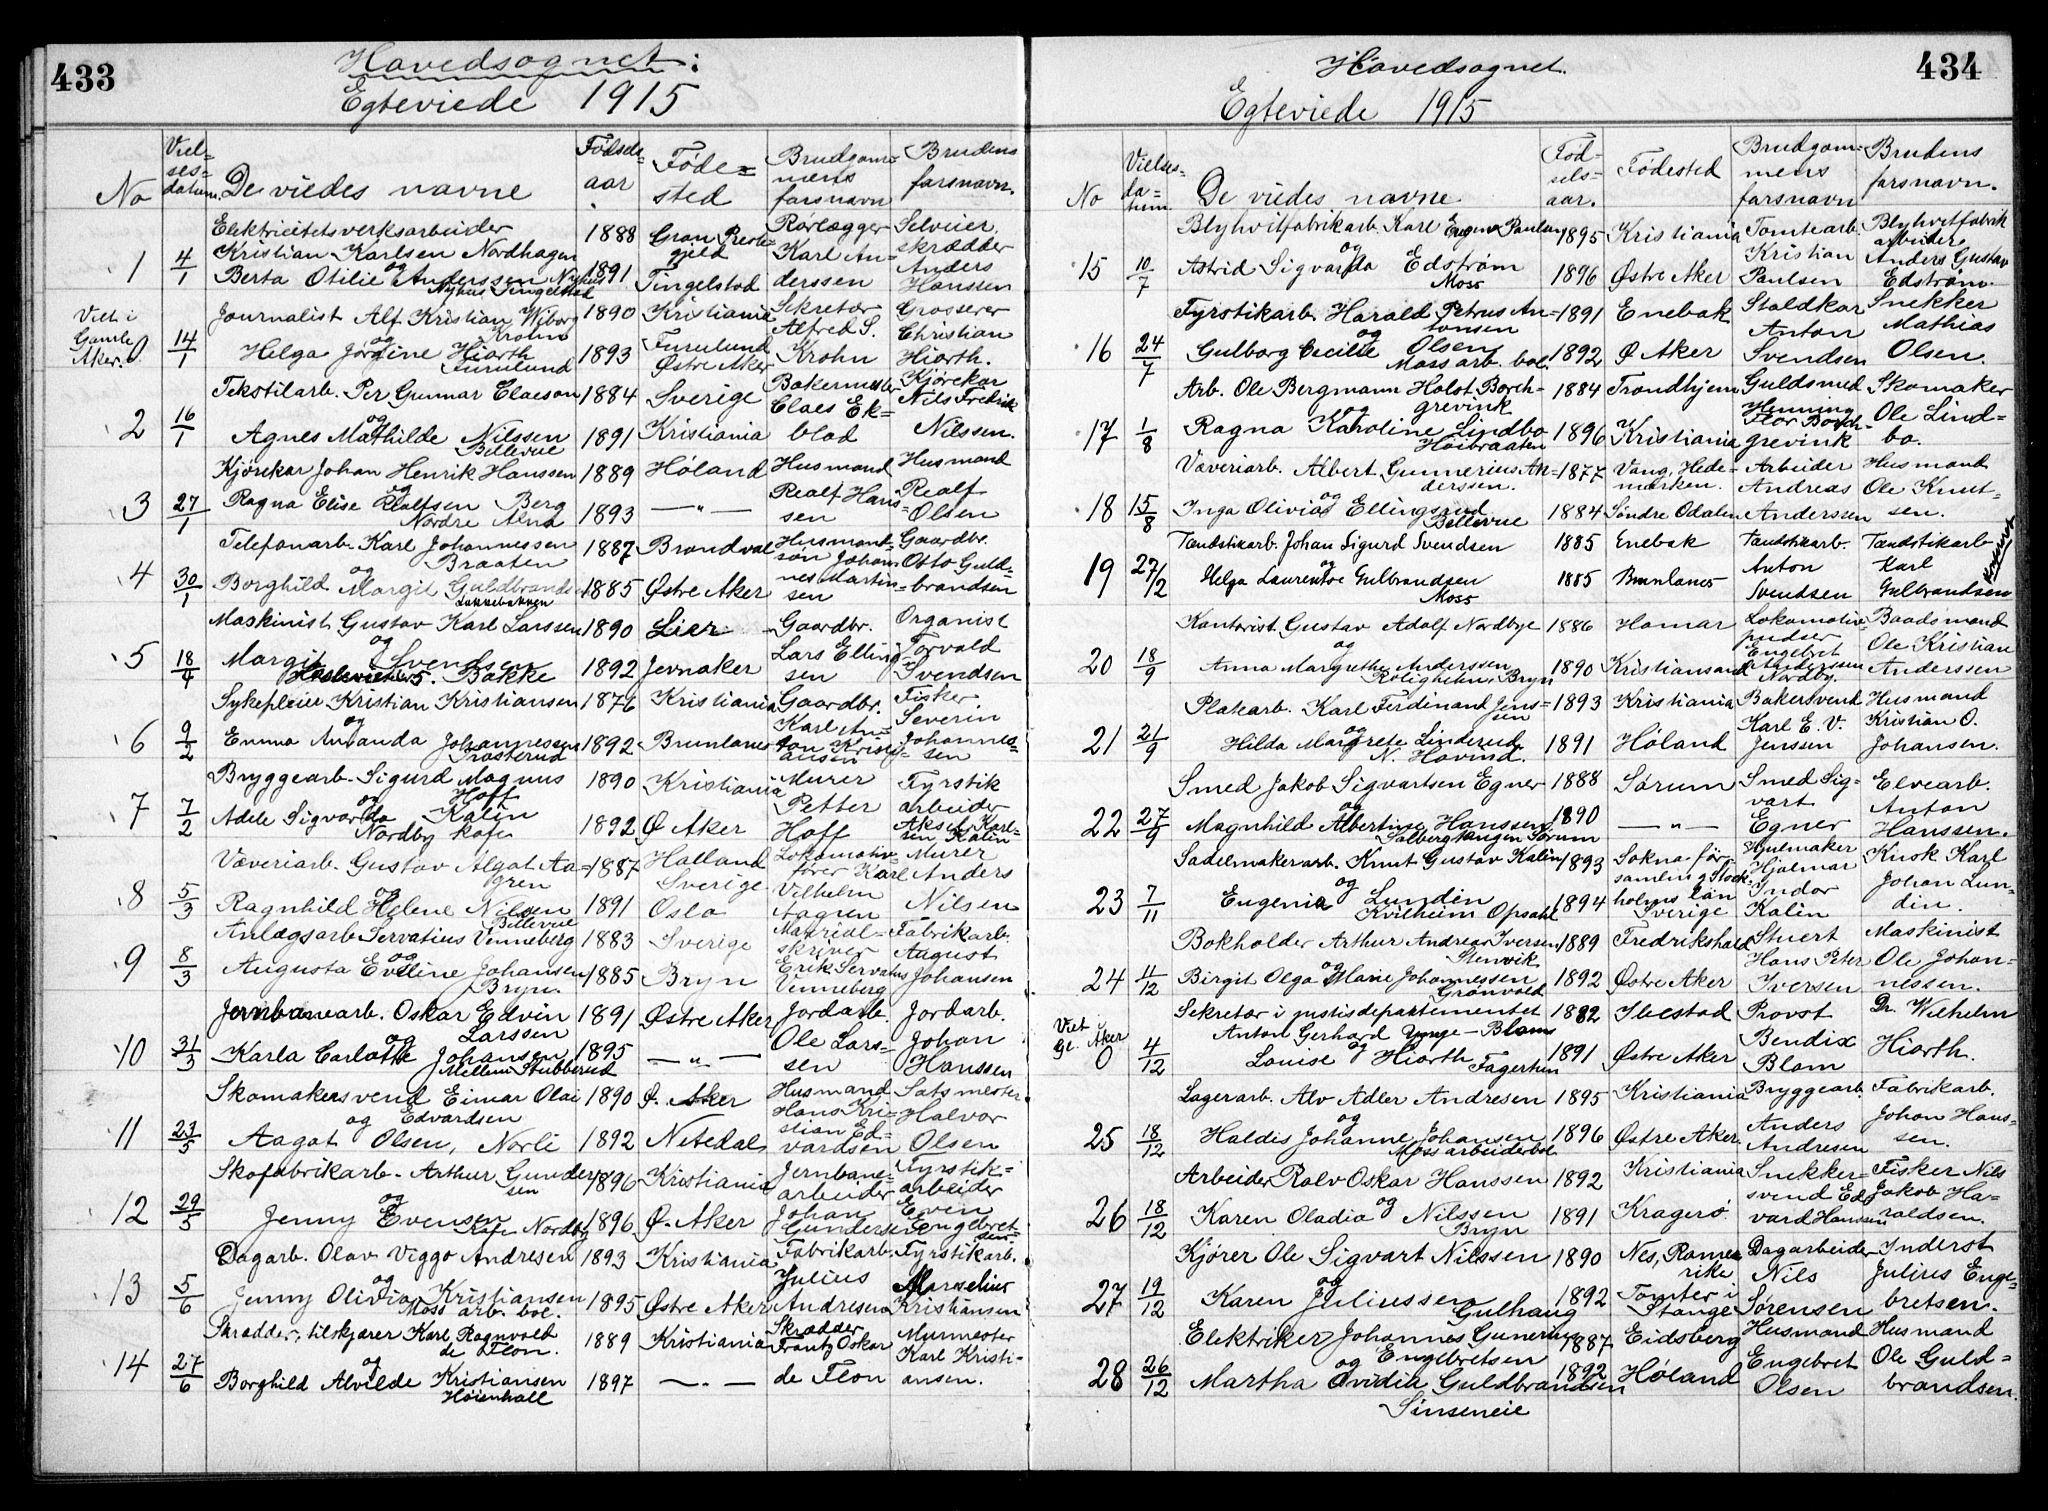 433
Hovedsognet:
Egteviede 1915
No
Vielsesdatum.
De viedes navne
Fødselsaar.
Fødested
Brudgommens farsnavn
Brudens farsnavn.
1 4/1 Elektricitetsverksarbeider Kristian Karlsen Nordhagen 1888 Gran Præstegjeld Rørlægger Karl Anderssen Selveier, skrædder Anders Hanssen
og
Berta Otilie Anderssen Nyhus Tingelstad 1891 Tingelstad
Viet i Gamle Aker. 0 14/1 Journalist Alf Kristian Wiborg Krohn 1890 Kristiania Sekretær Alfred S. Krohn Grosserer Christian Hiorth.
og
Helga Jørgine Hiorth Furulund 1893 Furulund Østre Aker
2 16/1 Tekstilarb. Per Gunnar Claeson 1884 Sverige Bakermester Claes Ekblad Kjørekar Nils Fredrik Nilssen.
og
Agnes Mathilde Nilssen Bellevue 1891 Kristiania
3 27/1 Kjørekar Johan Henrik Hanssen 1889 Høland Husmand Realf Hanssen Husmand Realf Olsen
og
Ragna Elise Realfsen Berg Nordre Alna 1893 — " —
4 30/1 Telefonarb. Karl Johannessen Braaten 1887 Brandval Husmandsøn Johannes Martinsen Gaardbr. Otto Guldbrandsen
og
Borghild Margit Guldbrandsen Lakkebakken 1885 Østre Aker
5 18/4 Maskinist Gustav Karl Larssen 1890 Lier Gaardbr. Lars Ellingsen Organist Torvald Svendsen
og
Margit Svendsen 5. Bakke 1892 Jevnaker
6 9/2 Sykepleier Kristian Kristiansen 1876 Kristiania Gaardbr. Karl Anton Kristiansen Fisker Severin Johannessen
og
Emma Amanda Johannessen Trosterud 1892 Brunlanes
7 7/2 Bryggearb. Sigurd Magnus Hoff 1890 Kristiania Murer Petter Hoff Fyrstikarbeider Aksel Karlsen Kalin
og
Adele Sigvarda Kalin Nordby kafe 1892 Ø Aker
8 5/3 Væveriarb. Gustav Algot Aagren 1887 Halland Sverige Lokomotivfører Karl Vilhelm Aagren Murer Anders Nilsen
og
Ragnhild Helene Nilsen Bellevue 1891 Oslo
9 8/3 Anlægsarb Servatius Venneberg 1883 Sverige Materialskriver Erik Servatius Venneberg Fabrikarb. August Johansen
og
Augusta Eveline Johansen Bryn. 1885 Bryn
10 31/3 Jernbanearb. Oskar Edvin Larssen 1891 Østre Aker Jordarb. Ole Larssen Jordarb. Johan Hanssen
og
Karla Carlotte Johansen Mellem Stubberud 1895 — " —
11 23/5 Skomakersvend Eimar Olai Edvardsen 1890 Ø. Aker Husmand Hans Kristian Edvardsen Satsmester Halvor Olsen
og
Aagot Olsen, Norli 1892 Nitedal
12 29/5 Skofabrikarb. Arthur Gundersen 1896 Kristiania Jernbanearbeider Johan Gundersen Fyrstikarbeider Even Engebretsen
og
Jenny Evensen Kafe Nordby 1896 Ø. Aker
13 5/6 Dagarb. Olav Viggo Andresen 1893 Kristiania Fabrikarb. Julius Andresen Fyrstikarb. Marselius Kristiansen
og
Jenny Olivia Kristiansen Moss arb. bol. 1895 Østre Aker
14 27/6 Skrædder, tilskjærer Karl Ragnvald de Flon. 1889 Kristiania Skrædder Frantz Oskar de Flon Murmester Karl Kristiansen.
og
Borghild Alvilde Kristiansen Høienhall 1897 — . —
434
Hovedsognet.
Egteviede 1915
No
Vielsesdatum
De viedes navne
Fødselsaar.
Fødested
Brudgommens farsnavn
Brudens farsnavn.
15 10/7 Blyhvitfabrikarb. Karl Eugen Paulsen 1895 Kristiania Tomtearb. Kristian Paulsen Blyhvitfabrikarbeider Anders Gustav Edstrøm.
og
Astrid Sigvarda Edstrøm Moss 1896 Østre Aker
16 24/7 Fyrstikarb. Harald Petrus Antonsen 1891 Enebak Staldkar Anton Svendsen Snekker Mathias Olsen.
og
Gulborg Cecilie Olsen Moss arb. bol. 1892 Ø Aker
17 1/8 Arb. Ole Bergmann Holst Borchgrevink 1884 Trondhjem Guldsmed Henning Flor Borchgrevink Skomaker Ole Lindbo.
og
Ragna Karoline Lindbo Høibraaten 1896 Kristiania
18 15/8 Væveriarb. Albert Gunnerius Anderssen. 1877 Vang, Hedemarken. Arbeider Andreas Anderssen Husmand Ole Knutsen.
og
Inga Olivia Ellingsrud Bellevue 1884 Søndre Odalen
19 27/2 Tændstikarb. Johan Sigurd Svendsen 1885 Enebak Tændstikarb. Anton Svendsen Tændstikarb Karl Gulbrandsen
og
Helga Laurentse Gulbrandsen Moss 1885 Brunlanes
20 18/9 Kontorist Gustav Adolf Nordbye 1886 Hamar Lokomotivpudser Engebret Anderssen Nordby. Baadsmand Ole Kristian Anderssen
og
Anna Margrethe Anderssen Rolighelm, Bryn 1890 Kristiansand
21 21/9 Platearb. Karl Ferdinand Jenssen 1893 Kristiania Bakersvend Karl E. V. Jenssen Husmand Kristian O. Johansen.
og
Hilda Margrete Linderud N. Hovind. 1891 Høland
22 27/9 Smed Jakob Sigvartsen Egner 1888 Sørum Smed Sigvart Egner Elvearb. Anton Hanssen.
og
Magnhild Albertine Hanssen Salbergtangen Sørum 1890 — " —
23 7/11 Sadelmakerarb. Knut Gustav Kalin 1893 Sokna församling Stockholms län Sverige Hjulmaker Hjalmar Indor Kalin Kusk Karl Johan Lundin.
og
Eugenia Lundin Kvilheim Opsahl 1894
24 11/12 Bokholder Arthur Andreas Iversen Stenvik 1889 Fredrikshald Stuert Hans Peter Iversen Maskinist Ole Johannessen.
og
Birgit Olga Marie Johannessen Grønvold 1892 Østre Aker
Viet i Gl. Aker 0 4/12 Sekretær i justisdepartementet Anton Gerhard Ynge-Blom 1882 Ibestad Provst Bendix Blom Dr. Wilhelm Hiorth.
og
Louise Hiorth Fagerhun 1891 Østre Aker
25 18/12 Lagerarb. Alv Adler Andresen 1895 Kristiania Bryggearb. Anders Andresen Fabrikarb. Johan Hanssen.
og
Haldis Johanne Johansen Moss arbeiderbol 1896 Østre Aker.
26 18/12 Arbeider Rolv Oskar Hanssen 1892 Kristiania Snekkersvend Edvard Hanssen Fisker Nils Jakob Haraldsen.
og
Karen Oladia Nilssen Bryn 1891 Kragerø
27 19/12 Kjører Ole Sigvart Nilssen 1890 Nes, Romerike Dagarbeider Nils Sørensen Inderst Julius Engebretsen.
og
Karen Juliussen Gulhaug 1892 Tomter i Stange
28 26/12 Elektriker Johannes Gunerius Engebretsen 1887 Eidsberg Husmand Engebret Olsen Husmand Ole Guldbrandsen.
og
Martha Ovidia Guldbrandsen Sinseneie 1892 Høland